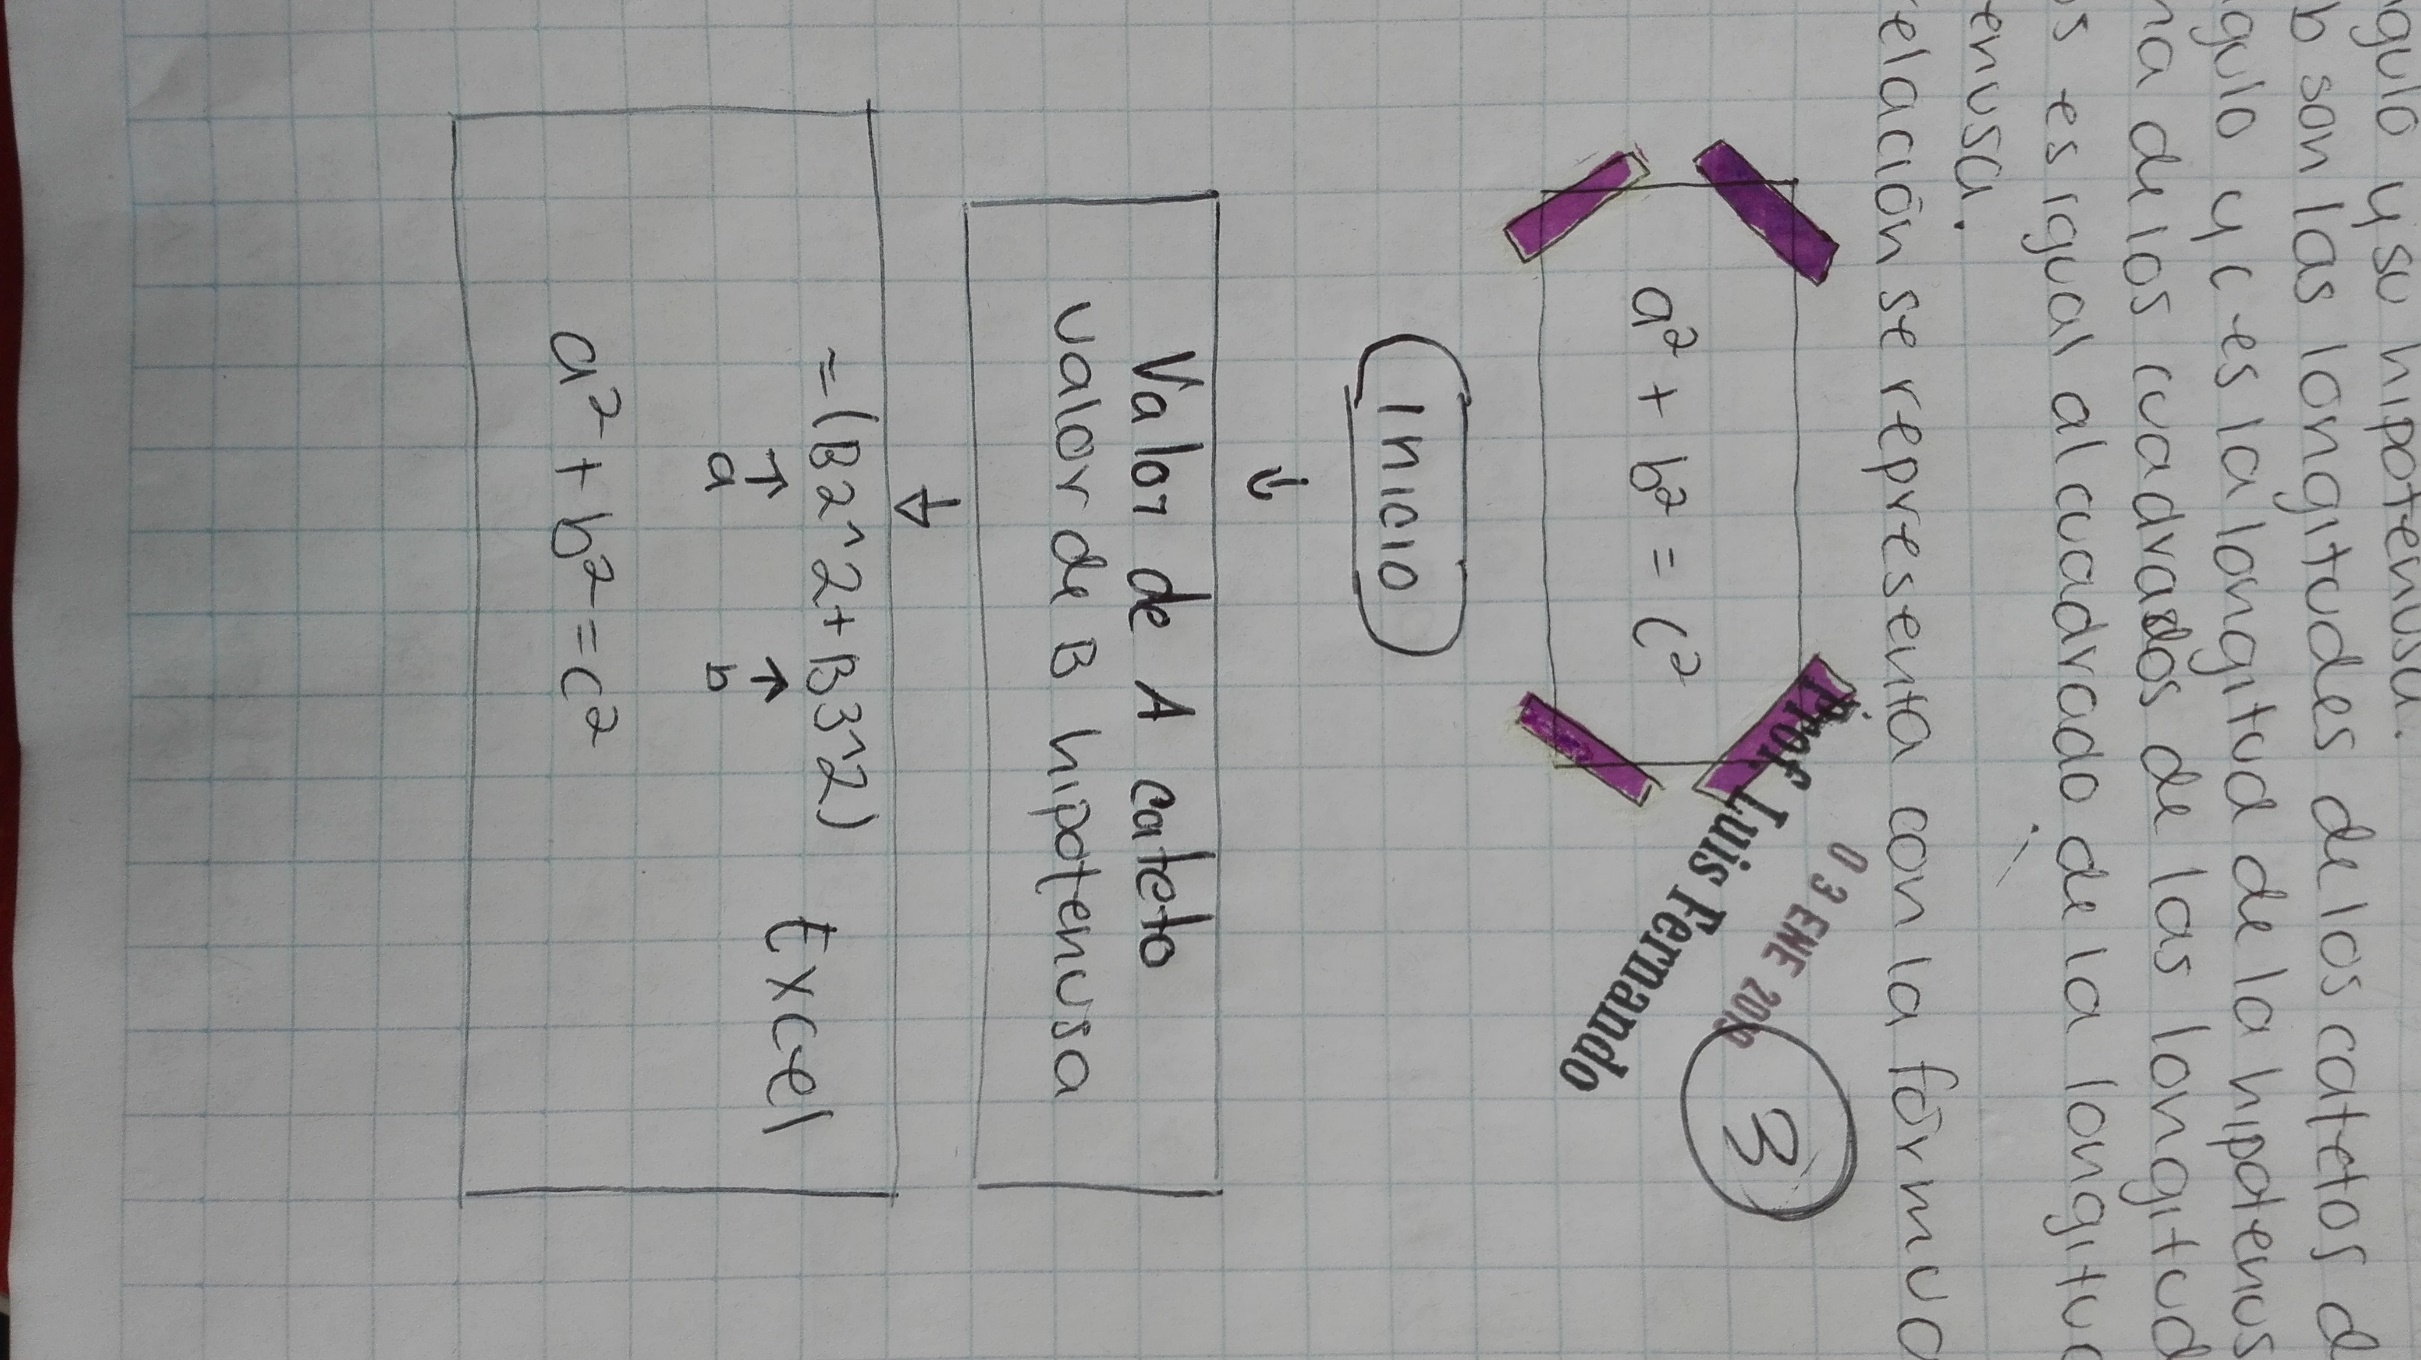 y su hipotenusa.
b son las longitudes de los catetos d
y c es la longitud de la hipotenus
de los cuadrados de las longitud
es igual al cuadrado de la longitud
relación se representa con la fórmu
a² + b² = c²
Prof. Luis Fernando
03 ENE
3
Inicio
↓
Valor de A cateto
valor de B hipotenusa
↓
=(B2^2+B3^2) Excel
↑ ↑
a b
a² + b² = c²